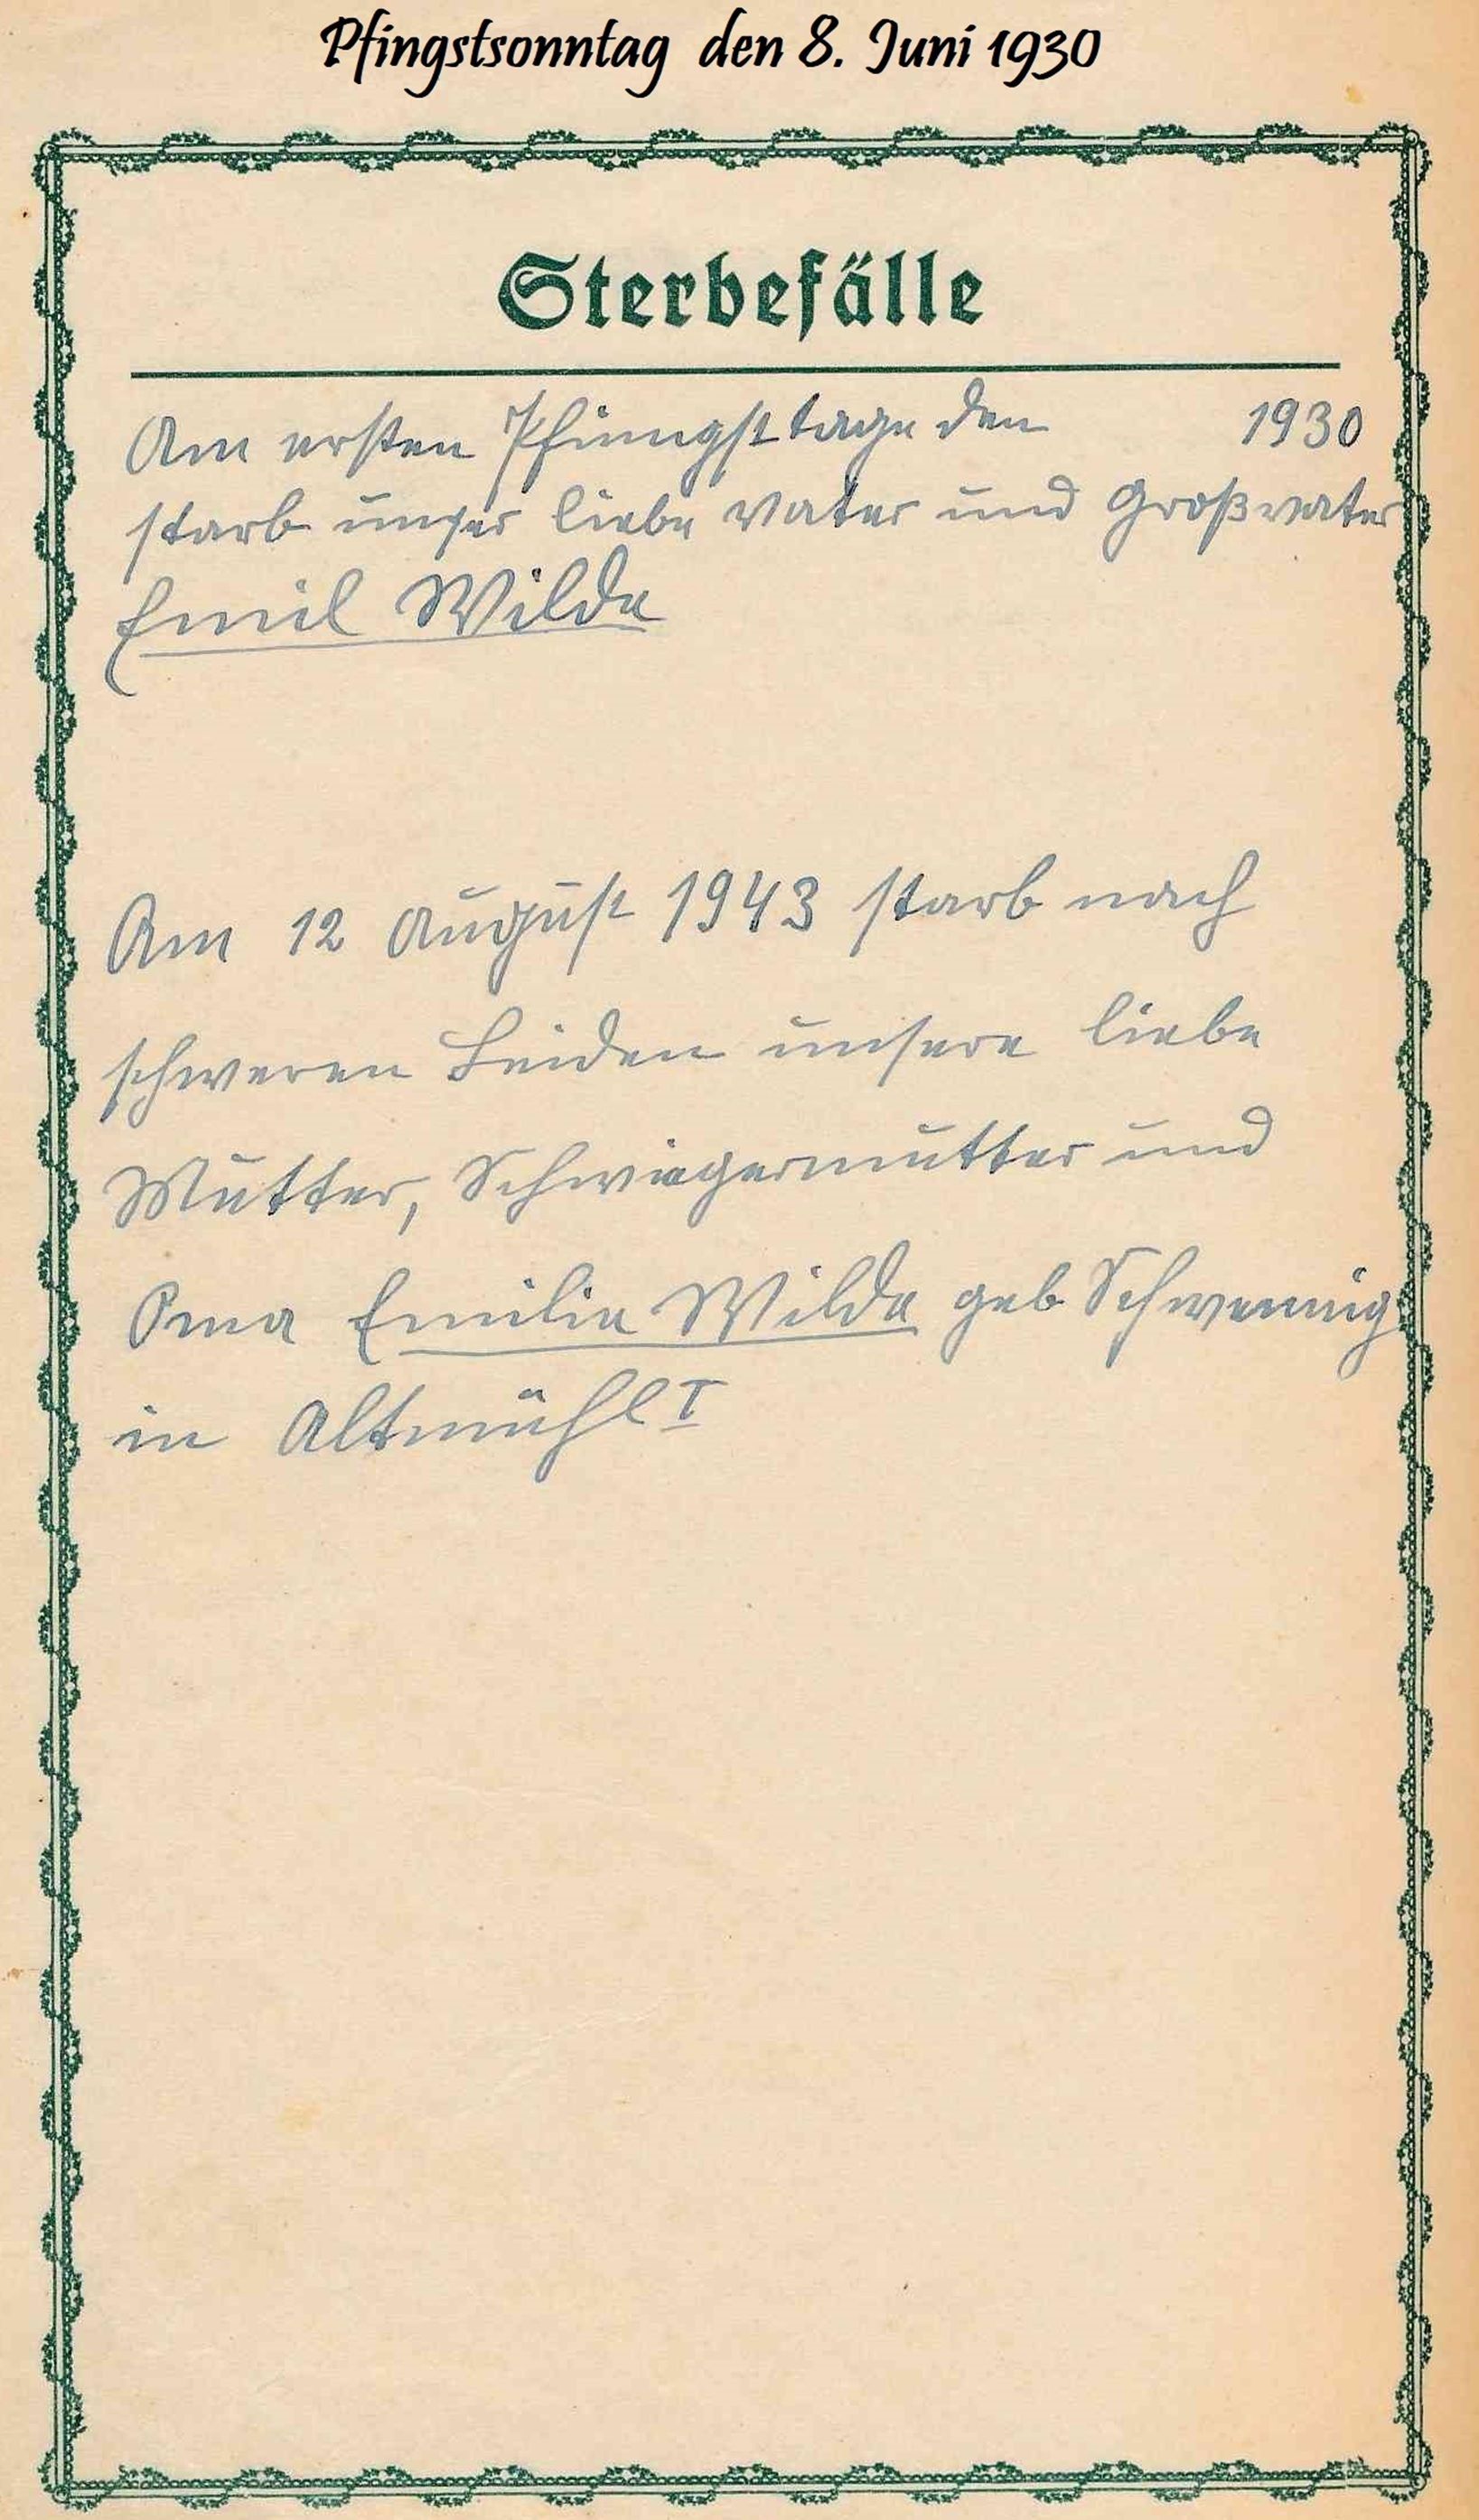 Pfingstsonntag den 8. Juni 1930
Sterbefälle
Am ersten Pfingsttage den 1930
starb unser liebe Vater und Großvater
Emil Wilde
Am 12 August 1943 starb nach
schweren Leiden unsere liebe
Mutter, Schwiegermutter und
Oma Emilie Wilde geb Schwennig
in Altmühl I